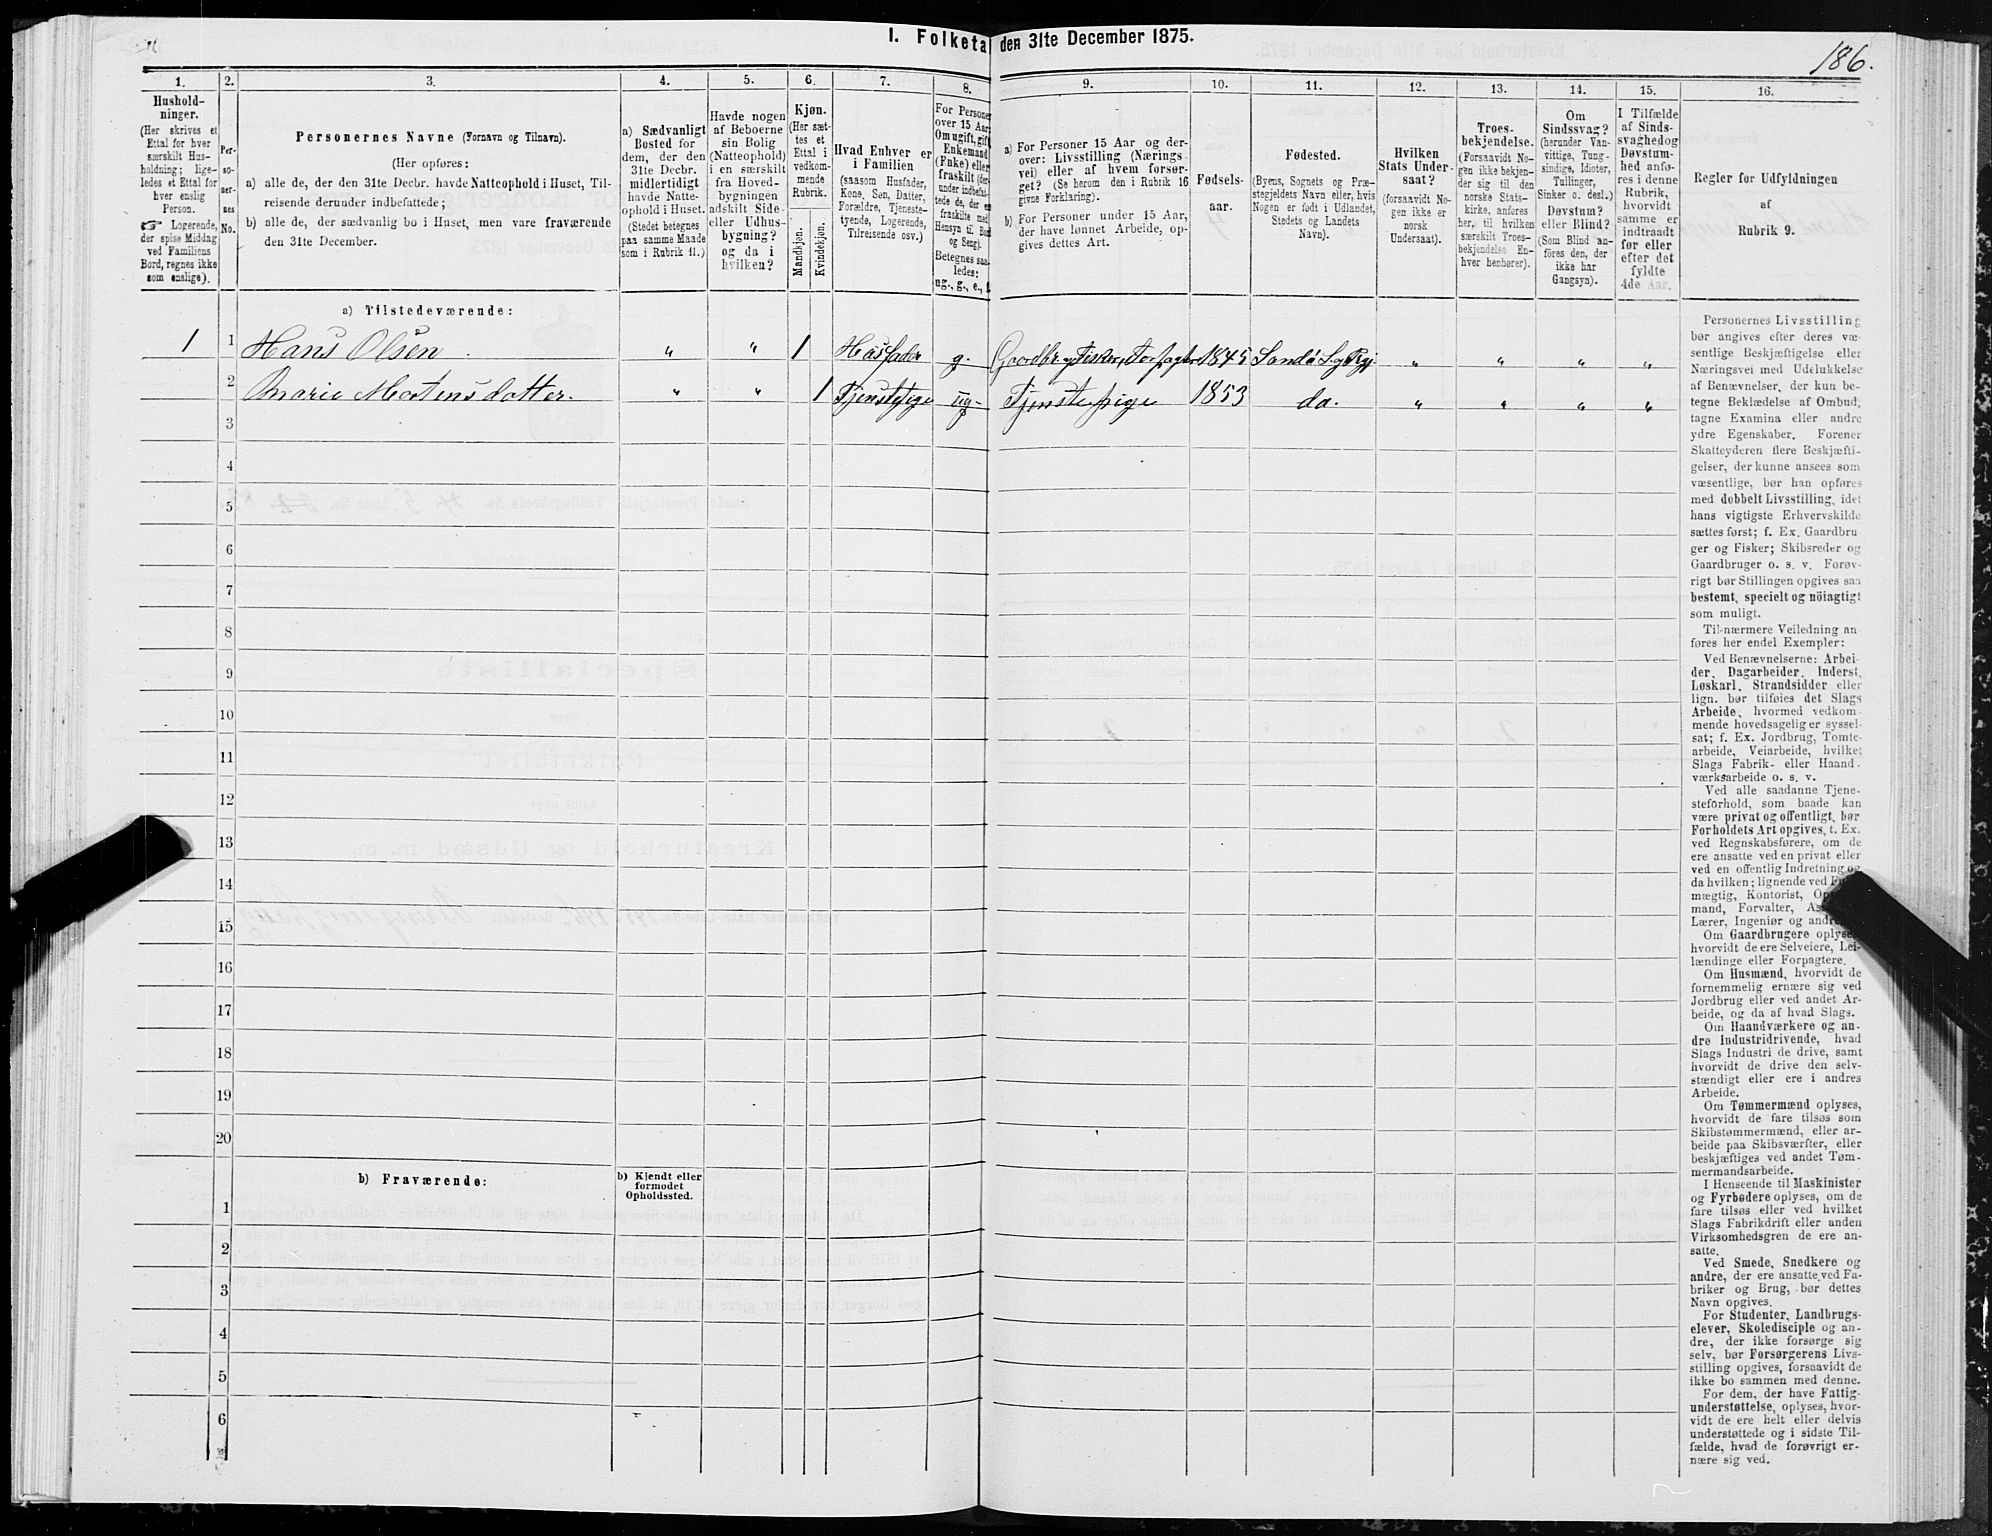 I. Folketa den 31te December 1875.
186.
1.
Hushold-
ninger.
(Her skrives et
Ettal for hver
særskilt Hus-
holdning; lige-
ledes et Ettal for
hver enslig
Person.
☞ Logerende,
der spise Middag
ved Familiens
Bord, regnes ikke
som enslige).
2.
Per-
so-
ner-
nes
No.
3.
Personernes Navne (Fornavn og Tilnavn).
(Her opføres:
a) alle de, der den 31te Decbr. havde Natteophold i Huset, Til-
reisende derunder indbefattede;
b) alle de, der sædvanlig bo i Huset, men vare fraværende
den 31te December.
4.
a) Sædvanligt
Bosted for
dem, der den
31te Decbr.
midlertidigt
havde Natte-
ophold i Huset.
(Stedet betegnes
paa samme Maade
som i Rubrik 11.)
5.
Havde nogen
af Beboerne
sin Bolig
(Natteophold)
i en særskilt
fra Hoved-
bygningen
adskilt Side-
eller Udhus-
bygning?
og da i
hvilken?
6.
Kjøn.
(Her sæt-
tes et
Ettal i
vedkom-
mende
Rubrik.
Mandkjøn.
Kvindekjøn.
7.
Hvad Enhver er
i Familien
(saasom Husfader,
Kone, Søn, Datter,
Forældre, Tjeneste-
tyende, Logerende,
Tilreisende osv.)
8.
For Personer
over 15 Aar:
Om ugift, gift,
Enkemand
(Enke) eller
fraskilt (der-
under indbefat-
tede de, der ere
fraskilte med
Hensyn til Bord
og Seng).
Betegnes saa-
ledes:
ug., g., e., f.
9.
a) For Personer 15 Aar og der-
over: Livsstilling (Nærings-
vei) eller af hvem forsør-
get? (Se herom den i Rubrik 16
givne Forklaring).
b) For Personer under 15 Aar,
der have lønnet Arbeide, op-
gives dettes Art.
10.
Fødsels-
aar.
11.
Fødested.
(Byens, Sognets og Præ-
stegjeldets Navn eller, hvis
Nogen er født i Udlandet,
Stedets og Landets
Navn).
12.
Hvilken
Stats Under-
saat?
(forsaavidt No-
gen ikke er
norsk
Undersaat).
13.
Troes-
bekjendelse.
(Forsaavidt No-
gen ikke bekjen-
der sig til den
norske Stats-
kirke, anføres
her, til hvilken
særskilt Troes-
bekjendelse En-
hver henhører).
14.
Om
Sindssvag?
(herunder Van-
vittige, Tung-
sindige, Idioter,
Tullinger,
Sinker o. desl.)
Døvstum?
eller Blind?
(Som Blind an-
føres den, der
ikke har
Gangsyn).
15.
I Tilfælde
af Sinds-
svaghed og
Døvstum-
hed anfø-
res i denne
Rubrik,
hvorvidt
samme er
indtraadt
før eller
efter det
fyldte
4de Aar.
16.
Regler for Udfyldningen
af
Rubrik 9.
a) Tilstedeværende:
1 1 Hans Olsen „ „ 1 Husfader g. Gaardbr. og Fisker, Forpagter 1845 „ „ „ „
2 Marie Mortensdatter. „ „ 1 Tjenstepige ug. Tjenstepige 1853 do. „ „ „ „
3
4
5
6
7
8
9
10
11
12
13
14
15
16
17
18
19
20
b) Fraværende:
b) Kjendt eller
formodet
Opholdssted.
1
2
3
4
5
6
Personernes Livsstilling
bør angives efter deres væ-
sentlige Beskjæftigelse eller
Næringsvei med Udelukkelse
af Benævnelser, der kun be-
tegne Beklædelse af Ombud,
tagne Examina eller andre
ydre Egenskaber. Forener
Skatteyderen flere Beskjæfti-
gelser, der kunne ansees som
væsentlige, bør han opføres
med dobbelt Livsstilling, idet
hans vigtigste Erhvervskilde
sættes først; f. Ex. Gaardbru
ger og Fisker; Skibsreder og
Gaardbruger o. s. v. Forøv-
rigt bør Stillingen opgives saa
bestemt, specielt og nöiagtigt
som muligt.
Til nærmere Veiledning an
føres her endel Exempler:
Ved Benævnelserne: Arbei-
der, Dagarbeider, Inderst,
Løskarl, Strandsidder eller
lign. bør tilføies det Slags
Arbeide, hvormed vedkom-
mende hovedsagelig er syssel-
sat; f. Ex. Jordbrug, Tomte-
arbeide, Veiarbeide, hvilket
Slags Fabrik- eller Haand-
værksarbeide o. s. v.
Ved alle saadanne Tjene-
steforhold, som baade kan
være privat og offentligt, bør
Forholdets Art opgives, t. Ex.
ved Regnskabsførere, om de
ere ansatte ved en privat eller
ved en offentlig Indretning og
da hvilken; lignende ved
mægtig, Kontorist,
mand, Forvalter,
Lærer, Ingeniør og
Om Gaardbrugere oplyse
hvorvidt de ere Selveiere, Lei-
lændinge eller Forpagtere.
Om Husmænd, hvorvidt de
fornemmelig ernære sig ved
Jordbrug eller ved andet Ar-
beide, og da af hvad Slags.
Om Haandværkere og an-
dre Industridrivende, hvad
Slags Industri de drive, samt
hvorvidt de drive den selv-
stændigt eller ere i andres
Arbeide.
Om Tømmermænd oplyses,
hvorvidt de fare tilsøs som
Skibstømmermænd, eller ar-
beide paa Skibsværfter, eller
beskjæftiges ved andet Tøm-
mermandsarbeide.
I Henseende til Maskinister
og Fyrbødere oplyses, om de
fare tilsøs eller ved hvilket
Slags Fabrikdrift eller anden
Virksomhedsgren de ere an-
satte.
Ved Smede, Snedkere og
andre, der ere ansatte ved Fa-
briker og Brug, bør dettes
Navn opgives.
For Studenter, Landbrugs-
elever, Skoledisciple og an-
dre, der ikke forsørge sig
selv, bør Forsørgerens Livs-
stilling opgives, forsaavidt de
ikke bo sammen med denne.
For dem, der have Fattig-
understøttelse, oplyses, hvor-
vidt de ere helt eller delvis
understøttede og i sidste Til-
fælde, hvad de forøvrigt er-
nære sig ved.